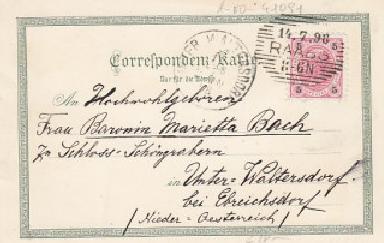 14.7.98
RAABS
5 5
5 5
Correspondenz-Karte
Nur für die Adresse
An Hochwohlgeboren
Frau Baronin Marietta Bach
Zu Schloss-Schöngrabern
in Unter-Waltersdorf
bei Ebreichsdorf
(Nieder-Oesterreich)